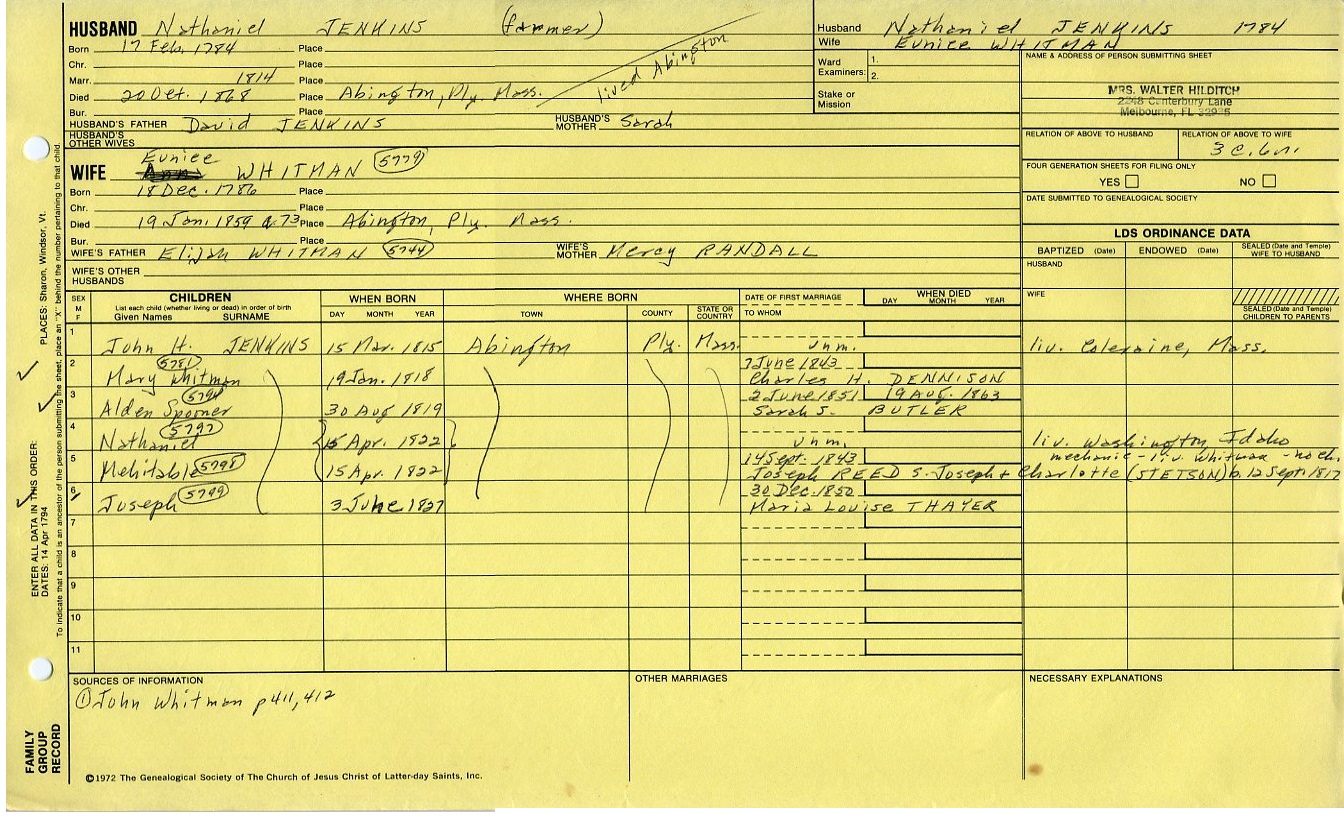 HUSBAND Nathaniel JENKINS (farmer)
Born 17 Feb. 1784 Place
Chr. Place
Marr. 1814 Place
Died 20 Oct. 1868 Place Abington, Ply. Mass.
lived Abington
Bur. Place
HUSBAND'S FATHER David JENKINS HUSBAND'S MOTHER Sarah
HUSBAND'S OTHER WIVES
Husband Nathaniel JENKINS 1784
Wife Eunice WHITMAN
Ward Examiners: 1.
2.
Stake or Mission
NAME & ADDRESS OF PERSON SUBMITTING SHEET
MRS. WALTER HILDITCH
2248 Canterbury Lane
Melbourne, FL 32935
RELATION OF ABOVE TO HUSBAND RELATION OF ABOVE TO WIFE
3c.6r.
FOUR GENERATION SHEETS FOR FILING ONLY
YES NO
DATE SUBMITTED TO GENEALOGICAL SOCIETY
Eunice
WIFE WHITMAN 5779
Born 18 Dec. 1786 Place
Chr. Place
Died 19 Jan. 1859 a. 73 Place Abington, Ply. Mass.
Bur. Place
WIFE'S FATHER Elijah WHITMAN 5744 WIFE'S MOTHER Mercy RANDALL
WIFE'S OTHER HUSBANDS
LDS ORDINANCE DATA
BAPTIZED (Date) ENDOWED (Date) SEALED (Date and Temple) WIFE TO HUSBAND
HUSBAND
WIFE
SEALED (Date and Temple) CHILDREN TO PARENTS
SEX M F CHILDREN WHEN BORN WHERE BORN DATE OF FIRST MARRIAGE WHEN DIED
List each child (whether living or dead) in order of birth
Given Names SURNAME DAY MONTH YEAR TOWN COUNTY STATE OR COUNTRY TO WHOM DAY MONTH YEAR
1 John H. JENKINS 15 Mar. 1815 Abington Ply. Mass. unm. liv. Coleraine, Mass.
2 5781 7 June 1843
Mary Whitman 19 Jan. 1818 Charles H. DENNISON
3 5794 2 June 1851 19 Aug. 1863
Alden Spooner 30 Aug 1819 Sarah S. BUTLER
4 5797
Nathaniel 15 Apr. 1822 unm. liv. Washington, Idaho
5 14 Sept. 1843 mechanic - liv. Whitman - no ch.
Mehitable 5798 15 Apr. 1822 Joseph REED S. Joseph + Charlotte (STETSON) b. 12 Sept. 1817
6 30 Dec. 1850
Joseph 5799 3 June 1827 Maria Louise THAYER
7
8
9
10
11
SOURCES OF INFORMATION
① John Whitman p411, 412
OTHER MARRIAGES
NECESSARY EXPLANATIONS
©1972 The Genealogical Society of The Church of Jesus Christ of Latter-day Saints, Inc.
FAMILY GROUP RECORD
ENTER ALL DATA IN THIS ORDER: PLACES: Sharon, Windsor, Vt.
DATES: 14 Apr 1794
To indicate that a child is an ancestor of the person submitting the sheet, place an "X" behind the number pertaining to that child.